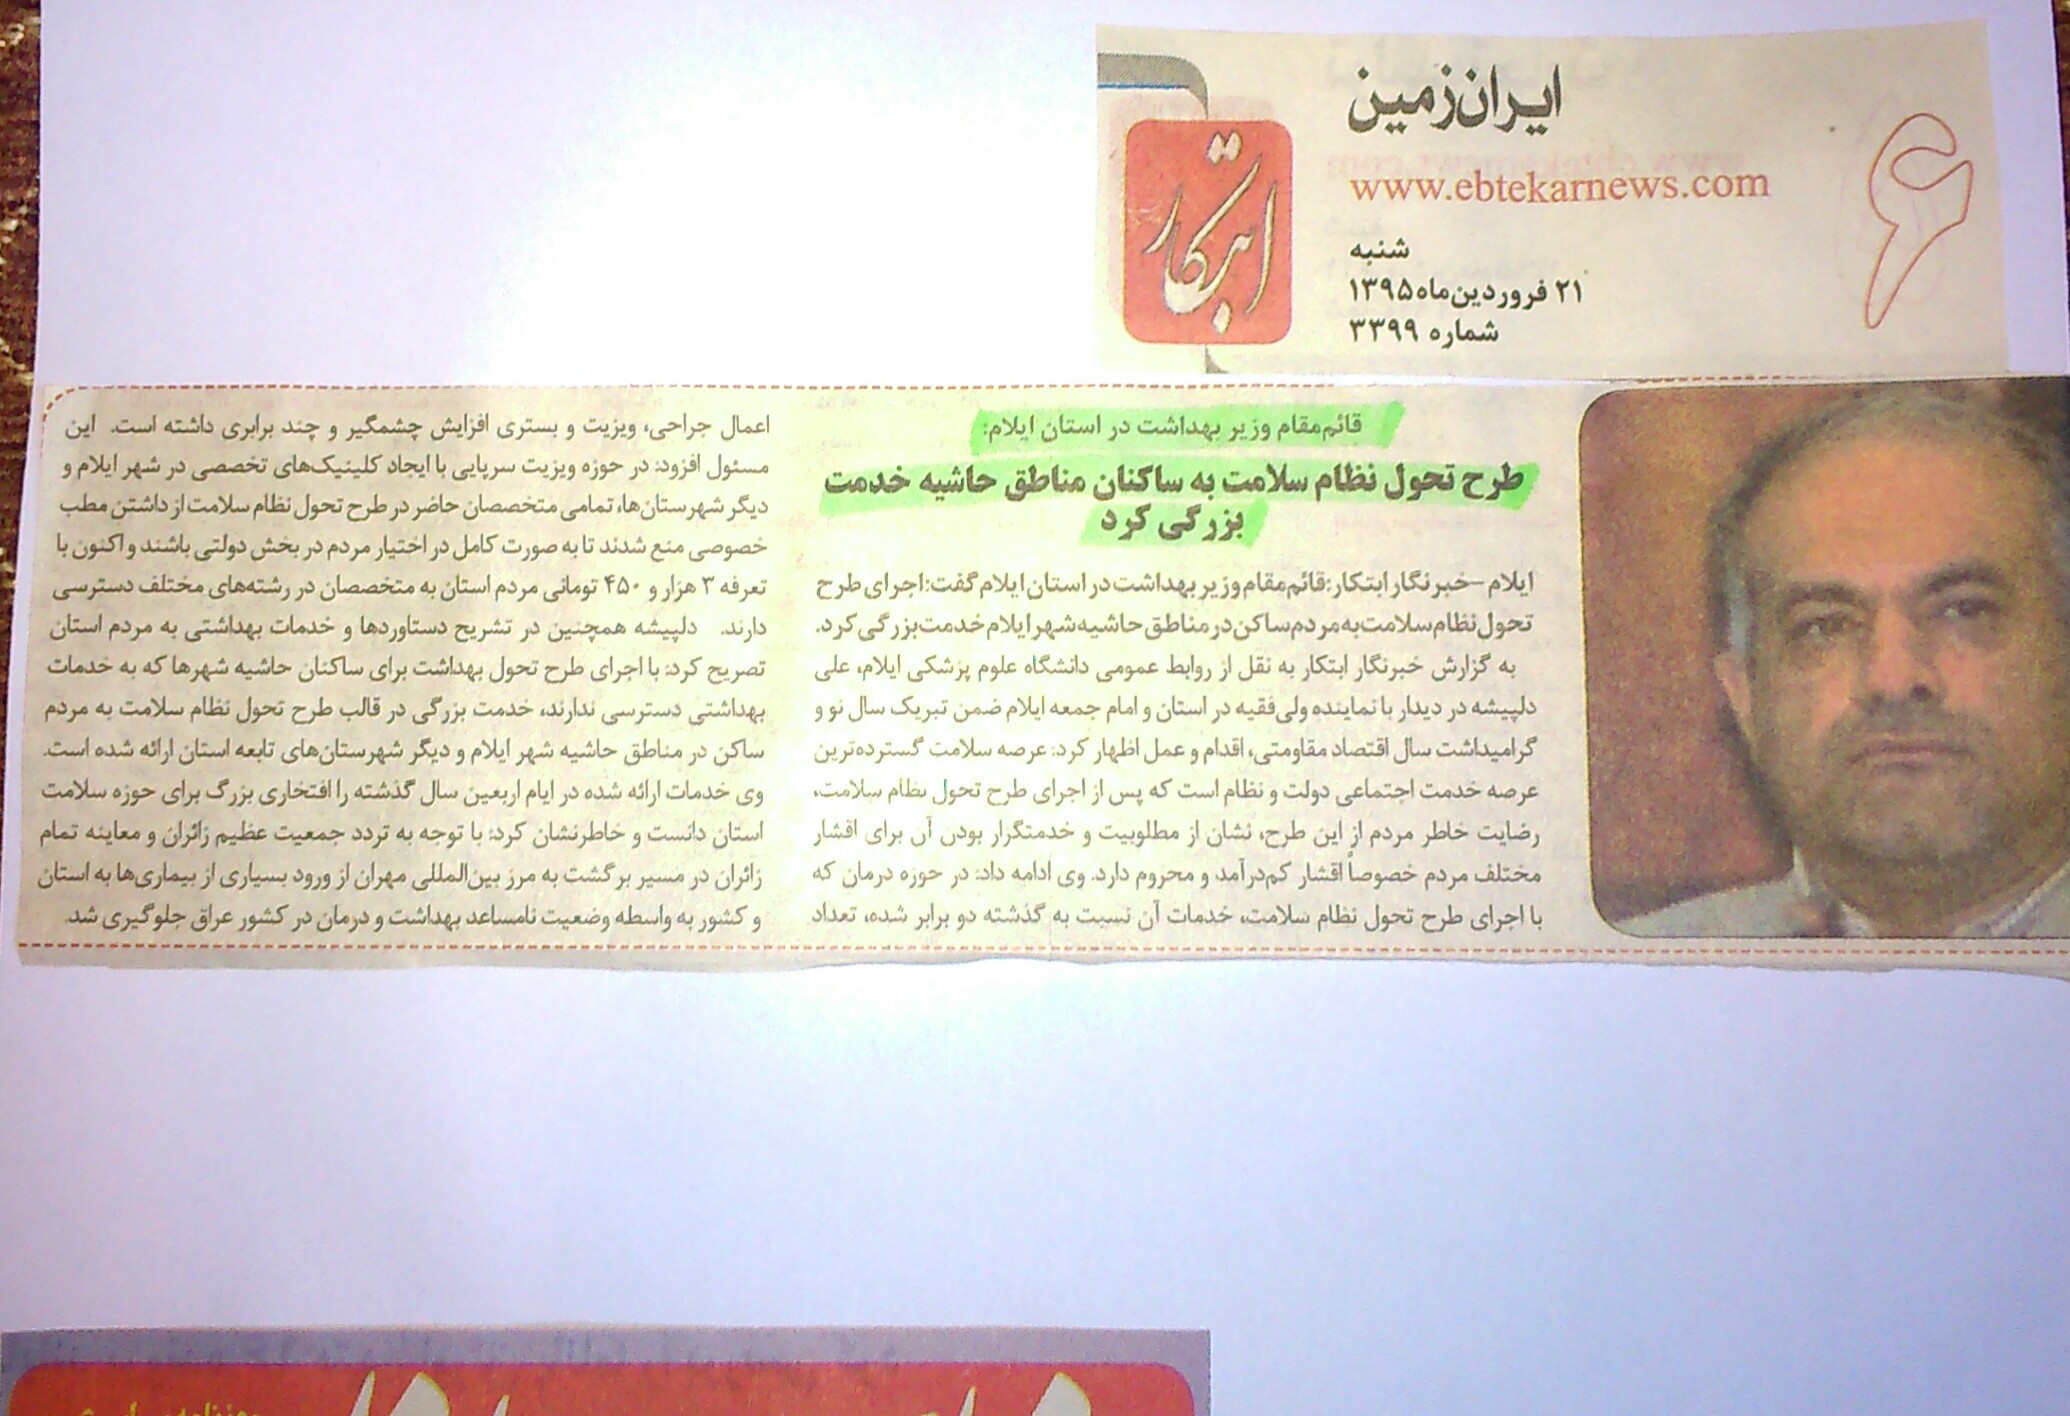 ایران‌زمین
www.ebtekarnews.com
شنبه
۲۱ فروردین‌ماه ۱۳۹۵
شماره ۳۳۹۹
۶
ابتکار
قائم‌مقام وزیر بهداشت در استان ایلام:
طرح تحول نظام سلامت به ساکنان مناطق حاشیه خدمت
بزرگی کرد
ایلام –خبرنگار ابتکار: قائم‌مقام وزیر بهداشت در استان ایلام گفت: اجرای طرح
تحول نظام سلامت به مردم ساکن در مناطق حاشیه شهر ایلام خدمت بزرگی کرد.
به گزارش خبرنگار ابتکار به نقل از روابط عمومی دانشگاه علوم پزشکی ایلام، علی
دلپیشه در دیدار با نماینده ولی‌فقیه در استان و امام جمعه ایلام ضمن تبریک سال نو و
گرامیداشت سال اقتصاد مقاومتی، اقدام و عمل اظهار کرد: عرصه سلامت گسترده‌ترین
عرصه خدمت اجتماعی دولت و نظام است که پس از اجرای طرح تحول نظام سلامت،
رضایت خاطر مردم از این طرح، نشان از مطلوبیت و خدمتگزار بودن آن برای اقشار
مختلف مردم خصوصاً اقشار کم‌درآمد و محروم دارد. وی ادامه داد: در حوزه درمان که
با اجرای طرح تحول نظام سلامت، خدمات آن نسبت به گذشته دو برابر شده، تعداد
اعمال جراحی، ویزیت و بستری افزایش چشمگیر و چند برابری داشته است. این
مسئول افزود: در حوزه ویزیت سرپایی با ایجاد کلینیک‌های تخصصی در شهر ایلام و
دیگر شهرستان‌ها، تمامی متخصصان حاضر در طرح تحول نظام سلامت از داشتن مطب
خصوصی منع شدند تا به صورت کامل در اختیار مردم در بخش دولتی باشند و اکنون با
تعرفه ۳ هزار و ۴۵۰ تومانی مردم استان به متخصصان در رشته‌های مختلف دسترسی
دارند. دلپیشه همچنین در تشریح دستاوردها و خدمات بهداشتی به مردم استان
تصریح کرد: با اجرای طرح تحول بهداشت برای ساکنان حاشیه شهرها که به خدمات
بهداشتی دسترسی ندارند، خدمت بزرگی در قالب طرح تحول نظام سلامت به مردم
ساکن در مناطق حاشیه شهر ایلام و دیگر شهرستان‌های تابعه استان ارائه شده است.
وی خدمات ارائه شده در ایام اربعین سال گذشته را افتخاری بزرگ برای حوزه سلامت
استان دانست و خاطرنشان کرد: با توجه به تردد جمعیت عظیم زائران و معاینه تمام
زائران در مسیر برگشت به مرز بین‌المللی مهران از ورود بسیاری از بیماری‌ها به استان
و کشور به واسطه وضعیت نامساعد بهداشت و درمان در کشور عراق جلوگیری شد.